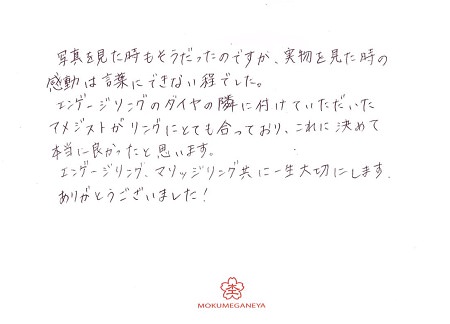 写真を見た時もそうだったのですが、実物を見た時の
感動は言葉にできない程でした。
エンゲージリングのダイヤの隣に付けていただいた
アメジストがリングにとても合っており、これに決めて
本当に良かったと思います。
エンゲージリング、マリッジリング共に一生大切にします。
ありがとうございました!
MOKUMEGANEYA